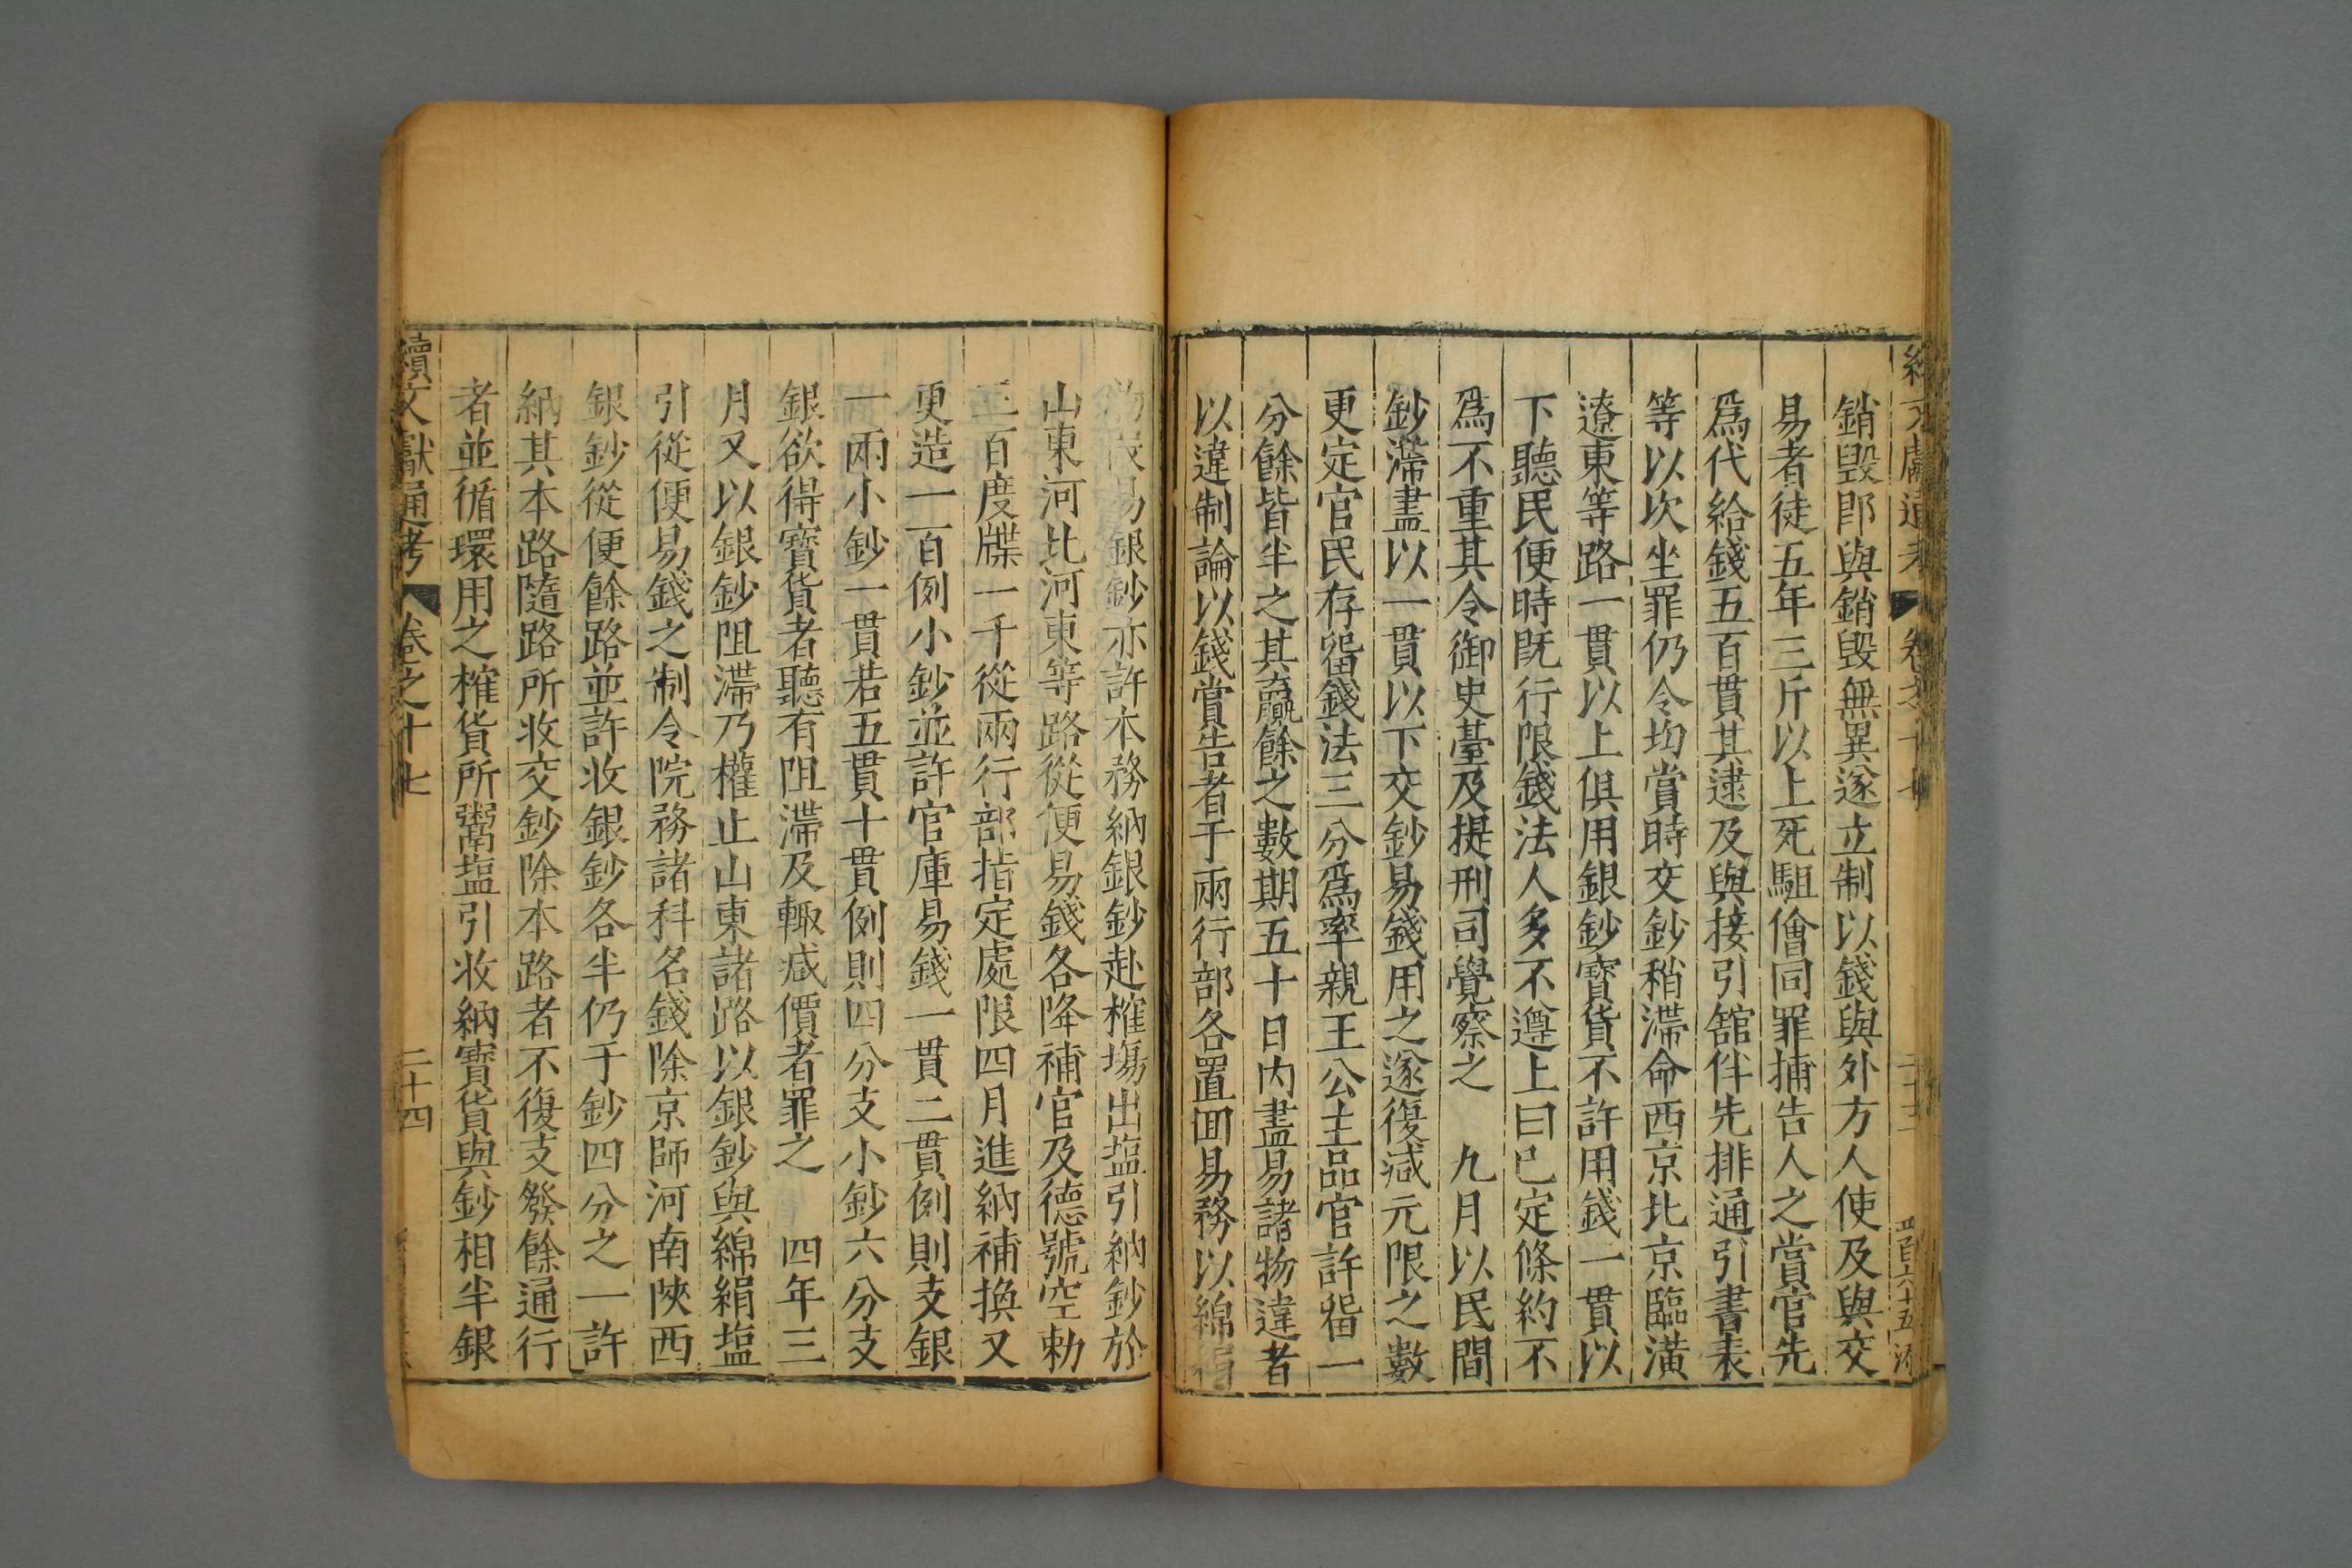 銷毀即與銷毀無異遂立制以錢與外方人使及與交
易者徒五年三斤以上死駔儈同罪捕告人之賞官先
爲代給錢五百貫其逮及與接引舘伴先排通引書表
等以次坐罪仍令均賞時交鈔稍滯命西京北京臨潢
遼東等路一貫以上俱用銀鈔寶貨不許用錢一貫以
下聽民便時旣行限錢法人多不遵上曰巳定條約不
爲不重其令御史臺及提刑司覺察之　九月以民間
鈔滯盡以一貫以下交鈔易錢用之遂復减元限之數
更定官民存畱錢法三分爲率親王公主品官許畱一
分餘皆半之其贏餘之數期五十日內盡易諸物違者
以違制論以錢賞告者于兩行部各置回易務以綿絹
物段易銀鈔亦許本務納銀鈔赴榷塲出塩引納鈔於
山東河北河東等路從便易錢各降補官及德號空勅
三百度牒一千從兩行部指定處限四月進納補換又
更造一百例小鈔並許官庫易錢一貫二貫例則支銀
一兩小鈔一貫若五貫十貫例則四分支小鈔六分支
銀欲得寶貨者聽有阻滯及輙减價者罪之　四年三
月又以銀鈔阻滯乃權止山東諸路以銀鈔與綿絹塩
引從便易錢之制令院務諸科名錢除京師河南陝西
銀鈔從便餘路並許收銀鈔各半仍于鈔四分之一許
納其本路隨路所收交鈔除本路者不復支發餘通行
者並循環用之榷貨所鬻塩引收納寶貨與鈔相半銀
續文獻通考　卷之十七　二十四